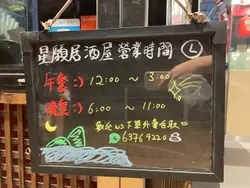 星願居酒屋營業時間 Ⓛ
午餐:) 12:00 ~ 3:00
晚餐:) 6:00 ~ 11:00
歡迎WS下單外賣自取♡
63769220